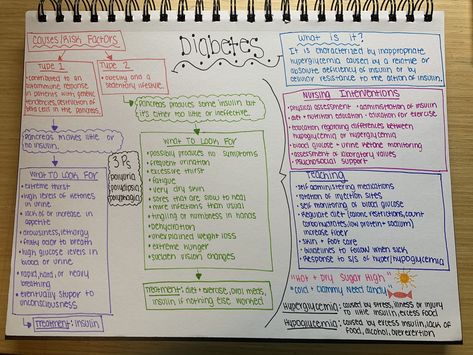 Diabetes
Causes/Risk Factors
Type 1
•contributed to an
autoimmune response
in patients with genetic
tendencies, destruction of
beta cells in the pancreas.
Type 2
• obesity and a
sedentary lifestyle.
Pancreas makes little or
no insulin.
WHAT TO LOOK FOR
• extreme thirst
• high levels of ketones in
urine
• lack of or increase in
appetite
• drowsiness, lethargy
• fruity odor to breath
• high glucose levels in
blood or urine
• rapid, hard, or heavy
breathing
• eventually stupor to
unconsciousness
Treatment: insulin
3 P's
polyuria
polydipsia
polyphagia
Pancreas produces some insulin but
it's either too little or ineffective.
WHAT TO LOOK FOR
• possibly produces no symptoms
• frequent urination
• excessive thirst
• fatigue
• very dry skin
• sores that are slow to heal
• more infections than usual
• tingling or numbness in hands
• dehydration
• unexplained weight loss
• extreme hunger
• sudden vision changes
Treatment: diet + exercise, oral meds,
insulin if nothing else worked
What is it?
It is characterized by inappropriate
hyperglycemia caused by a relative or
absolute deficiency of insulin or by
cellular resistance to the action of insulin.
Nursing Interventions
• physical assessment • administration of insulin
• diet + nutrition education • education for exercise
• education regarding differences between
hypoglycemia or hyperglycemia
• blood glucose + urine ketone monitoring
• assessment of laboratory values
• psychosocial support
Teaching
• self administering medications
• rotation of injection sites
• self monitoring of blood glucose
• Regulate diet (caloric restrictions, count
carbohydrates, low protein + sodium)
• increase fiber
• skin + foot care
• guidelines to follow when sick
• Response to s/s of hyper/hypoglycemia
"Hot + Dry Sugar High"
"Cold + Clammy Need Candy"
Hyperglycemia: caused by stress, illness or injury
to little insulin, excess food
Hypoglycemia: caused by excess insulin, lack of
food, alcohol, overexertion